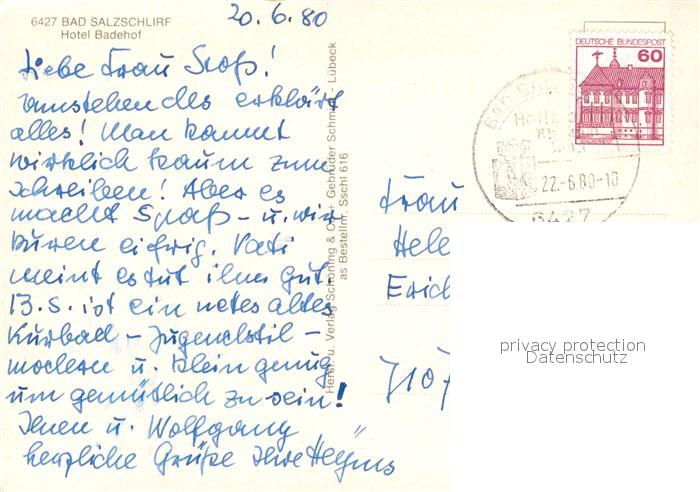 6427 BAD SALZSCHLIRF
Hotel Badehof
20.6.80
Liebe Frau Groß!
umstehendes erklärt
alles! Man kommt
wirklich kaum zum
Schreiben! Aber es
macht Spaß - u. wir
kuren eifrig. Vati
meint es tut ihm gut.
B.S. ist ein nettes altes
Kurbad - Jugendstil -
modern u. klein genug
um gemütlich zu sein!
Ihnen u. Wolfgang
herzliche Grüße Ihre Heyms
Herst. u. Verlag Schöning & Co + Gebrüder Schmidt - Lübeck
as Bestellnr. Sschl 616
DEUTSCHE BUNDESPOST
60
22.-6.80-10
6427
Frau
Hele
Erich
710
privacy protection
Datenschutz